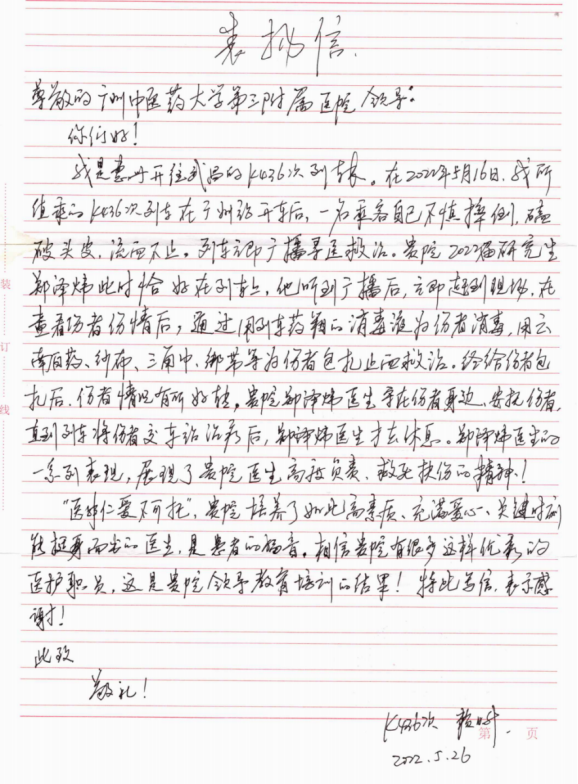 表扬信.
尊敬的广州中医药大学第三附属医院领导:
你们好!
我是惠州开往武昌的K436次列车长。在2022年5月16日,我所
值乘的K436次列车在广州站开车后,一名乘客自己不慎摔倒,磕
破头皮,流血不止。列车立即广播寻医救治。贵院2022届研究生
装
郑泽炜此时恰好在列车上,他听到广播后,立即赶到现场,在
查看伤者伤情后,通过用列车药箱的消毒液为伤者消毒,用云
订
南白药、纱布、三角巾、绷带等为伤者包扎止血救治。经给伤者包
线
扎后,伤者情况有所好转。贵院郑泽炜医生守在伤者身边、安抚伤者,
直到列车将伤者交车站治疗后,郑泽炜医生才去休息。郑泽炜医生的
一系列表现,展现了贵院医生高度负责、救死扶伤的精神!
“医神仁爱不可托”,贵院培养了如此高素质、充满爱心、关键时刻
能挺身而出的医生,是患者的福音。相信贵院有很多这样优秀的
医护职员,这是贵院领导教育培训的结果!特此写信,表示感
谢!
此致
敬礼!
K436次
第 页
2022.5.26